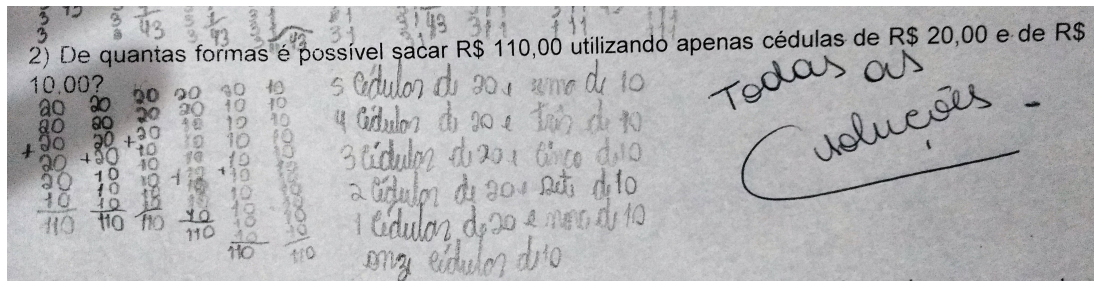 2) De quantas formas é possível sacar R$ 110,00 utilizando apenas cédulas de R$ 20,00 e de R$
10,00?
20 20 20 20 20 10
20 20 20 20 10 10
+20 20 +20 10 10 10
20 +20 10 10 10 10
20 10 10 +10 +10 10
10 10 10 10 10 10
110 110 110 110 110 110
5 cédulas de 20 e uma de 10
4 cédulas de 20 e três de 10
3 cédulas de 20 e cinco de 10
2 cédulas de 20 e sete de 10
1 cédulas de 20 e nove de 10
onze cédulas de 10
Todas as
soluções